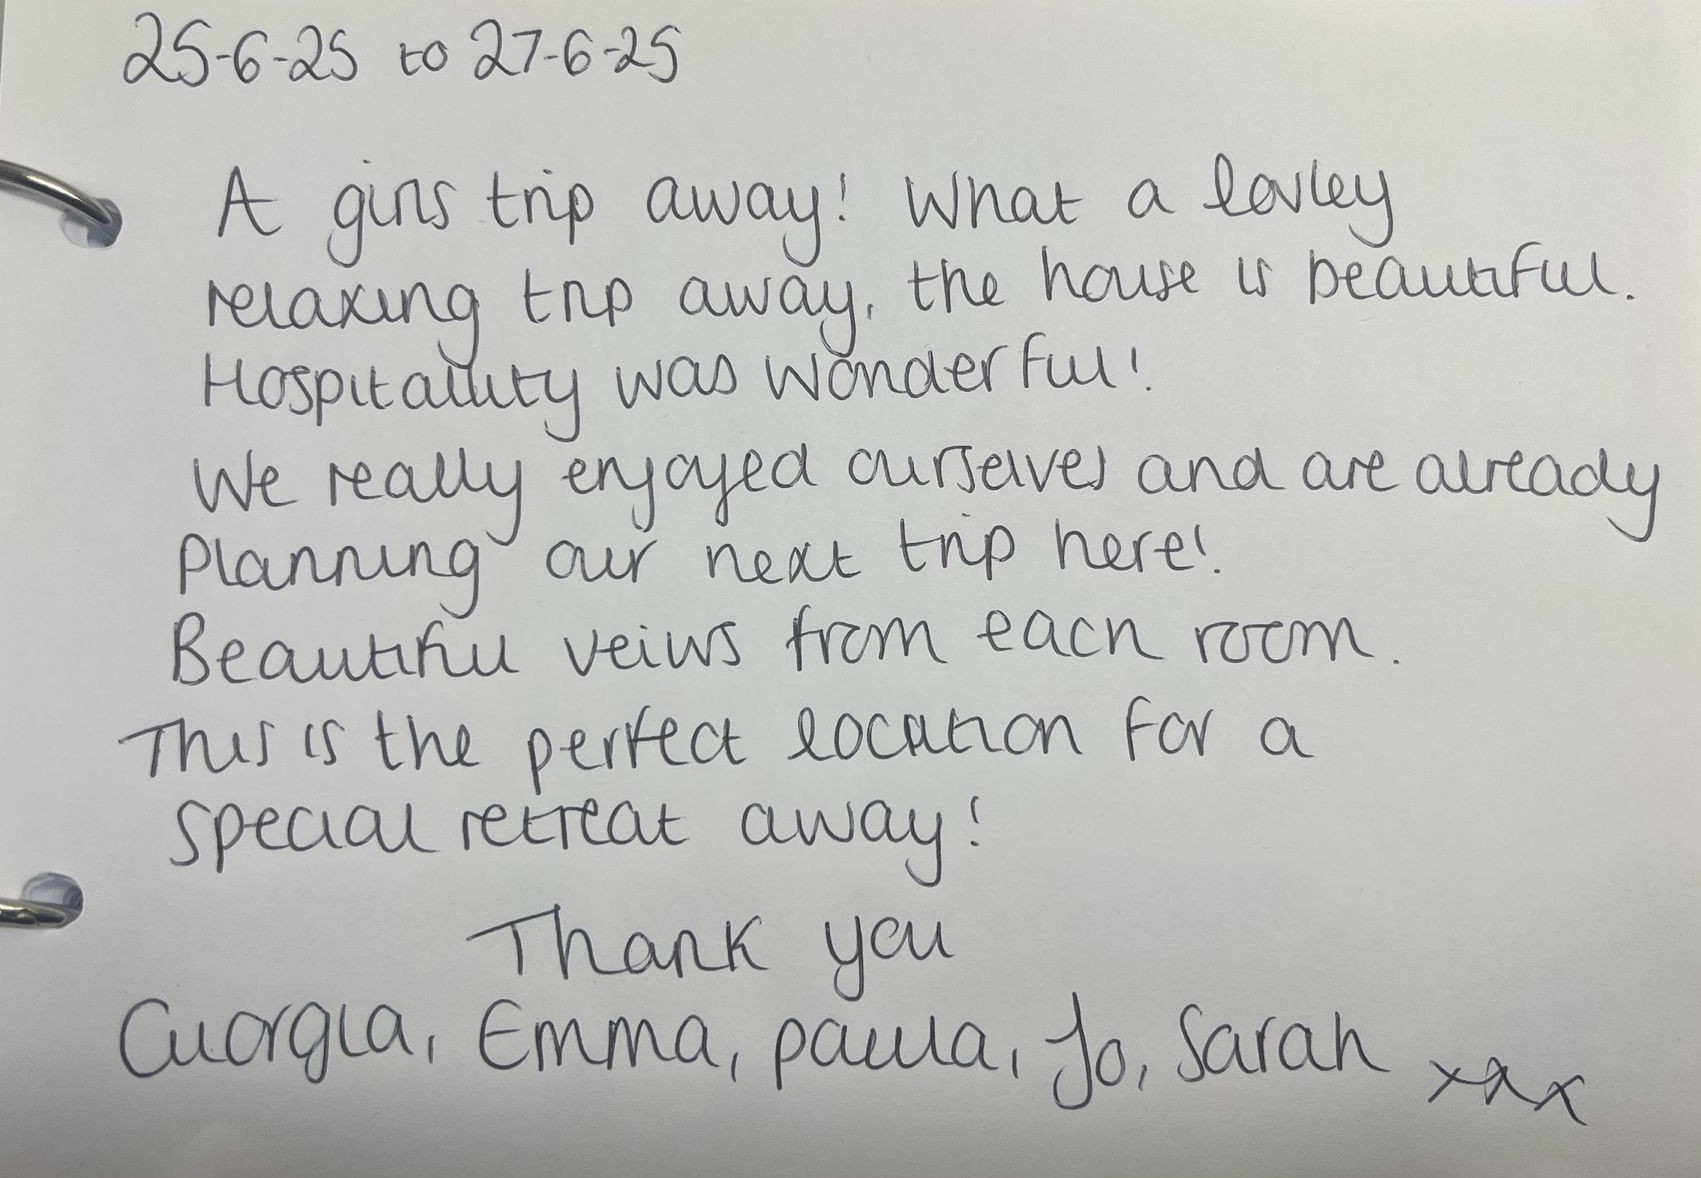 25-6-25 to 27-6-25
A girls trip away! What a lovley
relaxing trip away, the house is beautiful.
Hospitality was wonderful!
We really enjoyed ourselves and are already
Planning our next trip here!
Beautiful veiws from each room.
This is the perfect location for a
special retreat away!
Thank you
Georgia, Emma, paula, Jo, Sarah xxx